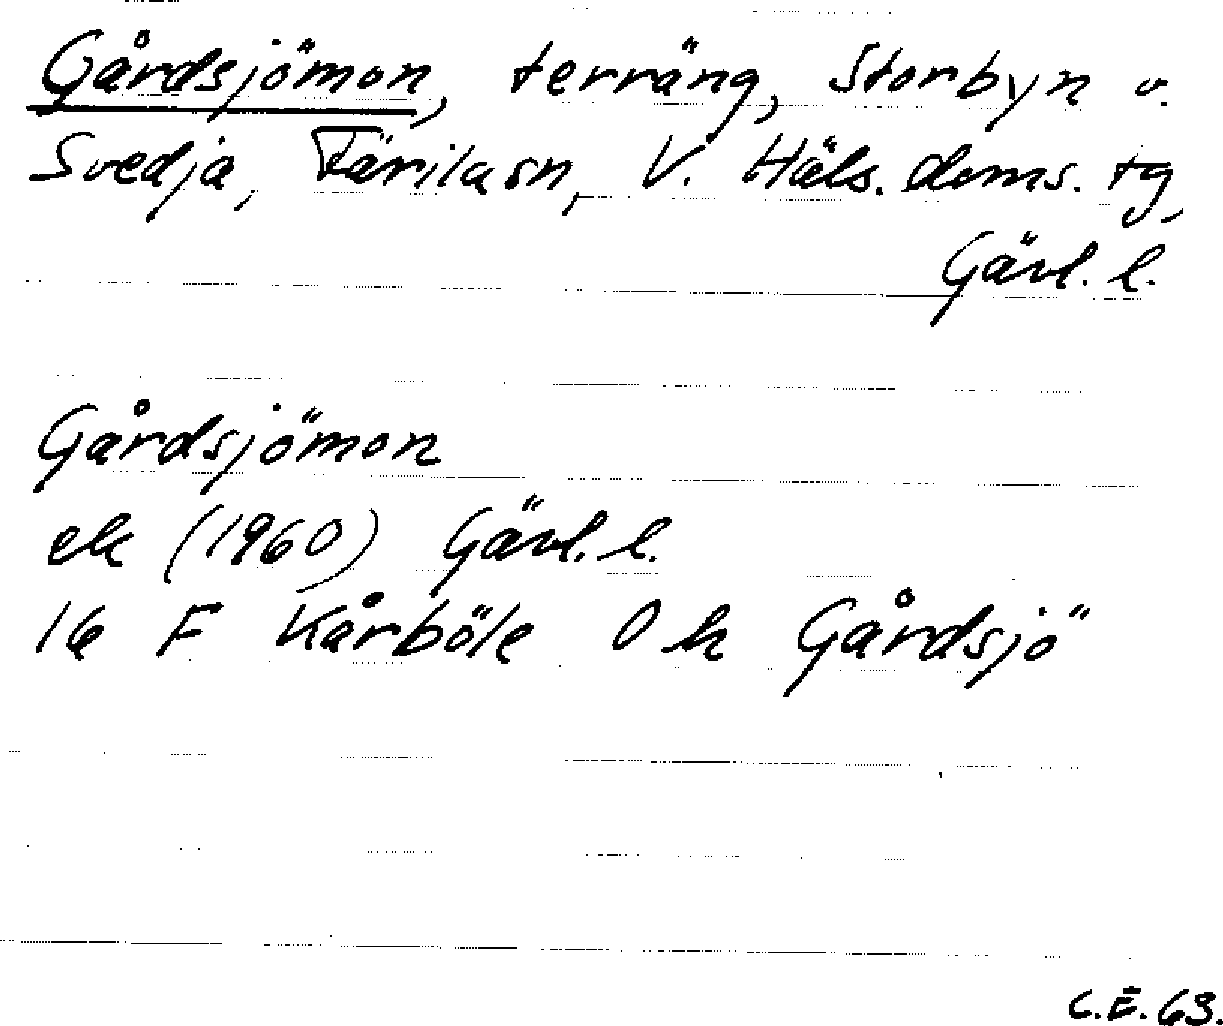 Gårdsjömon, terräng, Storbyn o.
Svedja, Färila sn, V. Häls. doms. tg,
Gävl. l.
Gårdsjömon
ek (1960) Gävl. l.
16 F Kårböle 0 h Gårdsjö
C.E. 63.